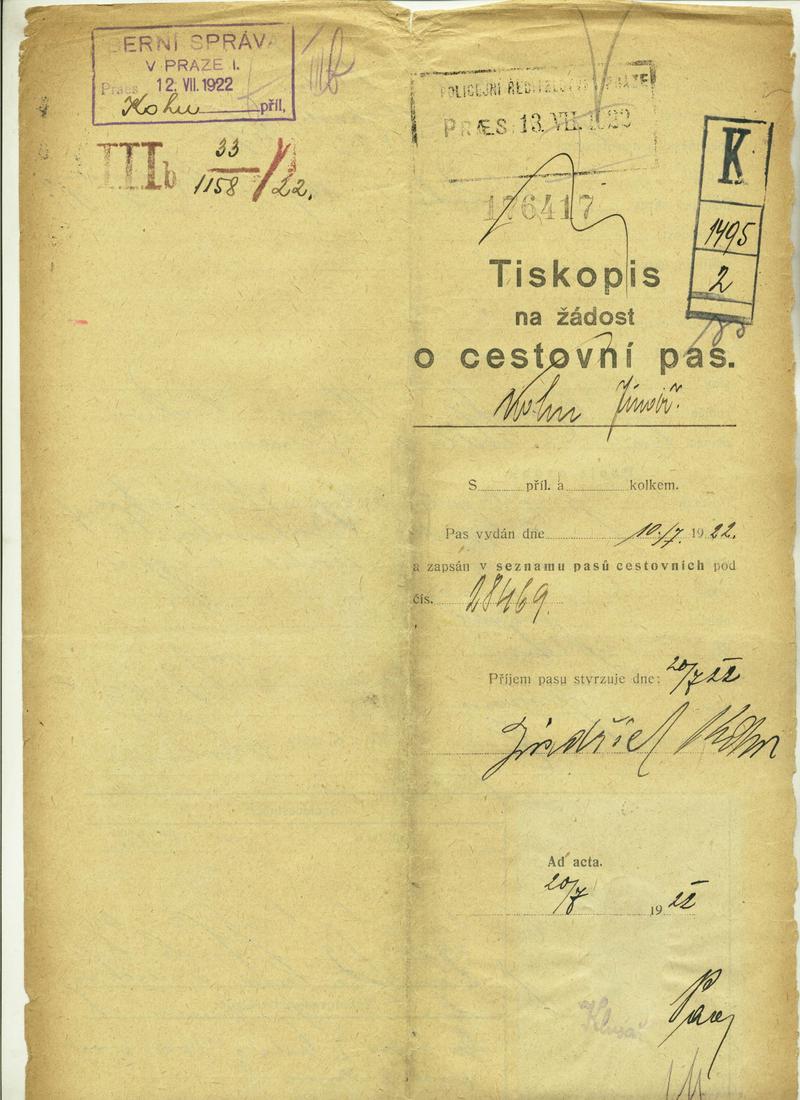 BERNÍ SPRÁVA
V PRAZE I.
Praes 12. VII. 1922
Kohn příl.
IIIb
IIIb 33/1158/22.
POLICEJNÍ ŘEDITELSTVÍ V PRAZE
PRÆS. 13. VII. 1922
176417
K
1495
2
Tiskopis
na žádost
o cestovní pas.
Kohn Jindř.
S příl. a kolkem.
Pas vydán dne 10/7. 1922.
a zapsán v seznamu pasů cestovních pod
čís. 28469.
Příjem pasu stvrzuje dne: 20/7 22
Jindřich Kohn
Ad acta.
20/7 1922